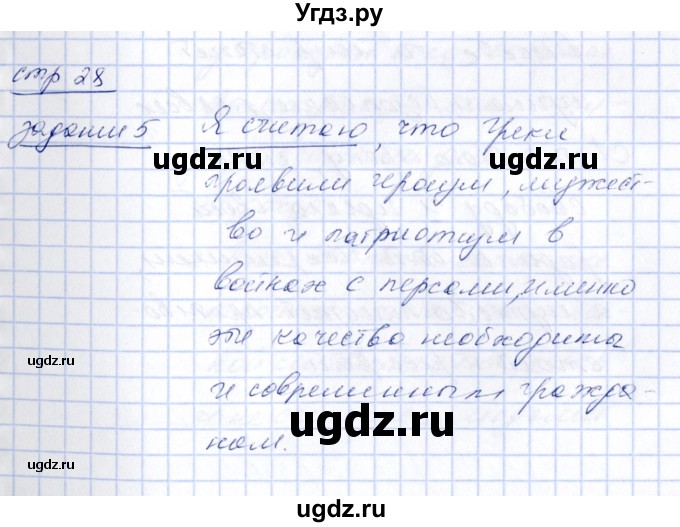 Угдз.ру
стр 28
задание 5 Я считаю, что Греки
ugdz.ru ugdz.ru
проявили героизм, мужест-
во и патриотизм в
войнах с персами, именно
ugdz.ru
эти качества необходимы
ugdz.ru
и современным гражда-
ugdz.ru
нам.
ugdz.ru ugdz.ru